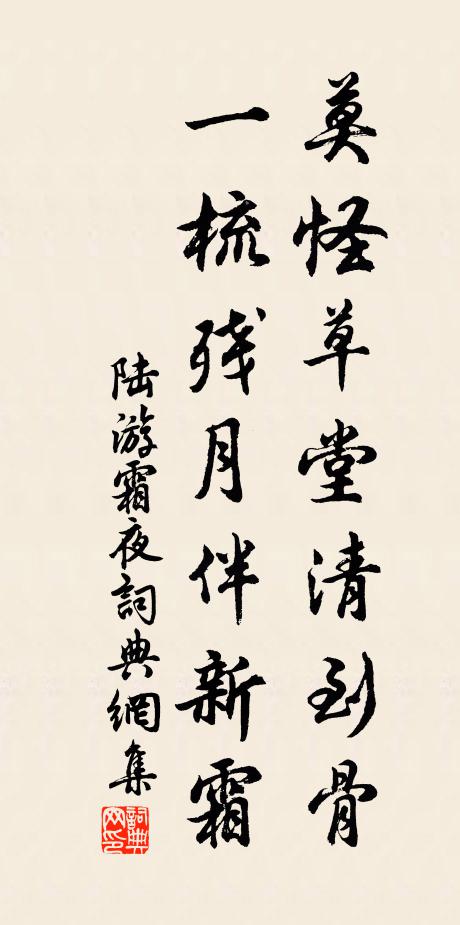 莫怪草堂清到骨
一梳残月伴新霜
陆游霜夜詞典網集
詞典网印